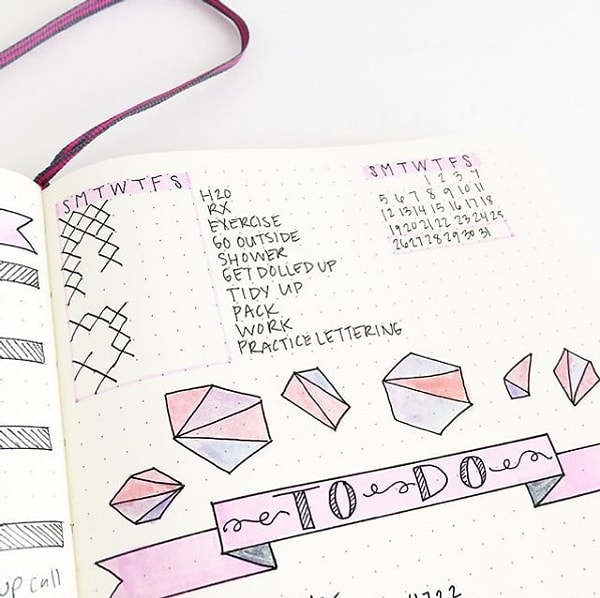 S M T W T F S
H20
RX
EXERCISE
GO OUTSIDE
SHOWER
GET DOLLED UP
TIDY UP
PACK
WORK
PRACTICE LETTERING
S M T W T F S
1 2 3 4
5 6 7 8 9 10 11
12 13 14 15 16 17 18
19 20 21 22 23 24 25
26 27 28 29 30 31
TO DO
up call